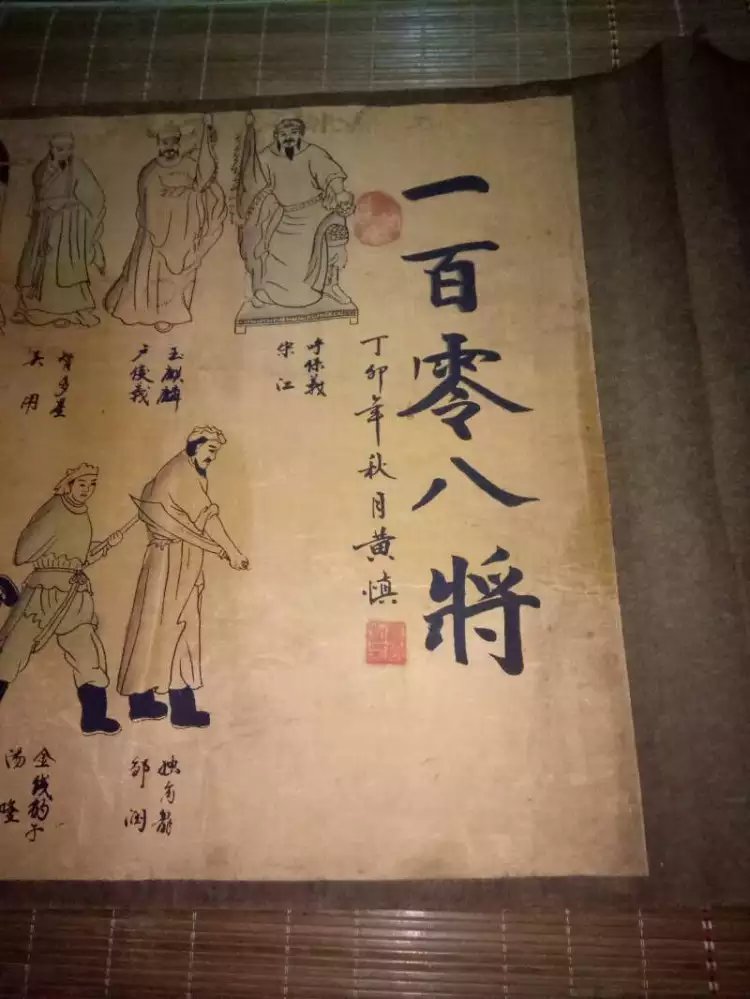 一百零八將
丁卯年秋月黃慎
呼保義
宋江
玉麒麟
卢俊義
智多星
吴用
独角龍
邹润
金钱豹子
汤隆